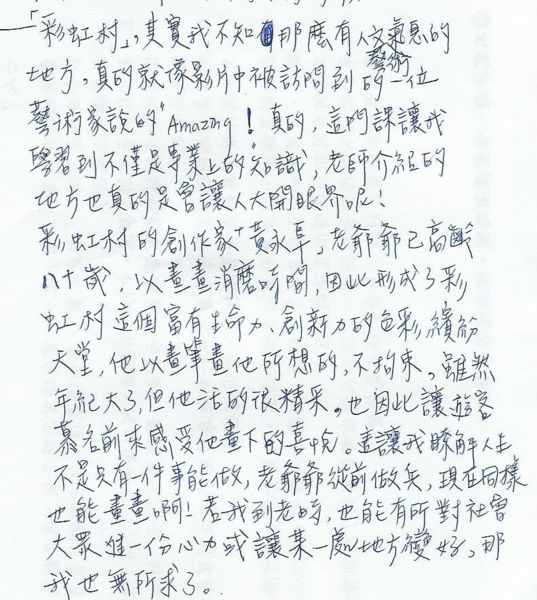 「彩虹村」，其實我不知那麼有人文氣息的
藝術
地方，真的就像影片中被訪問到的一位
藝術家說的"Amazing！真的，這門課讓我
學習到不僅是專業上的知識，老師介紹的
地方也真的是會讓人大開眼界呢！
彩虹村的創作家+黃永阜，老爺爺已高齡
八十歲，以畫畫消磨時間，因此形成了彩
虹村這個富有生命力、創新力的色彩繽紛
天堂，他以畫筆畫他所想的，不拘束。雖然
年紀大了，但他活的很精采。也因此讓遊客
慕名前來感受他畫下的喜悅。這讓我瞭解人生
不是只有一件事能做，老爺爺從前做兵，現在同樣
也能畫畫啊！若我到老時，也能有所對社會
大眾進一份心力或讓某一處地方變好，那
我也無所求了。